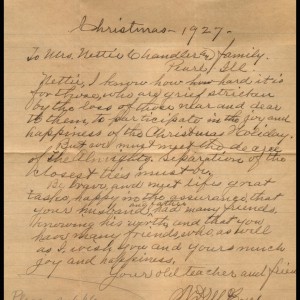 Christmas - 1927 -
To Mrs. Nettie Chandler & Family.
Pearl, Ill.
Nettie, I know how how hard it is
for those who are grief stricken
by the loss of those near and dear
to them, to participate in the joy and
happiness of the Christmas Holiday.
But we must meet the decree
of the Almighty. Separation of the
closest ties must be.
Be brave and meet life's great
tasks, happy in the assurance that
your husband had many friends,
knowing his worth, and that you
have many friends who as well
as I wish you and yours much
joy and happiness.
Your old teacher and friend